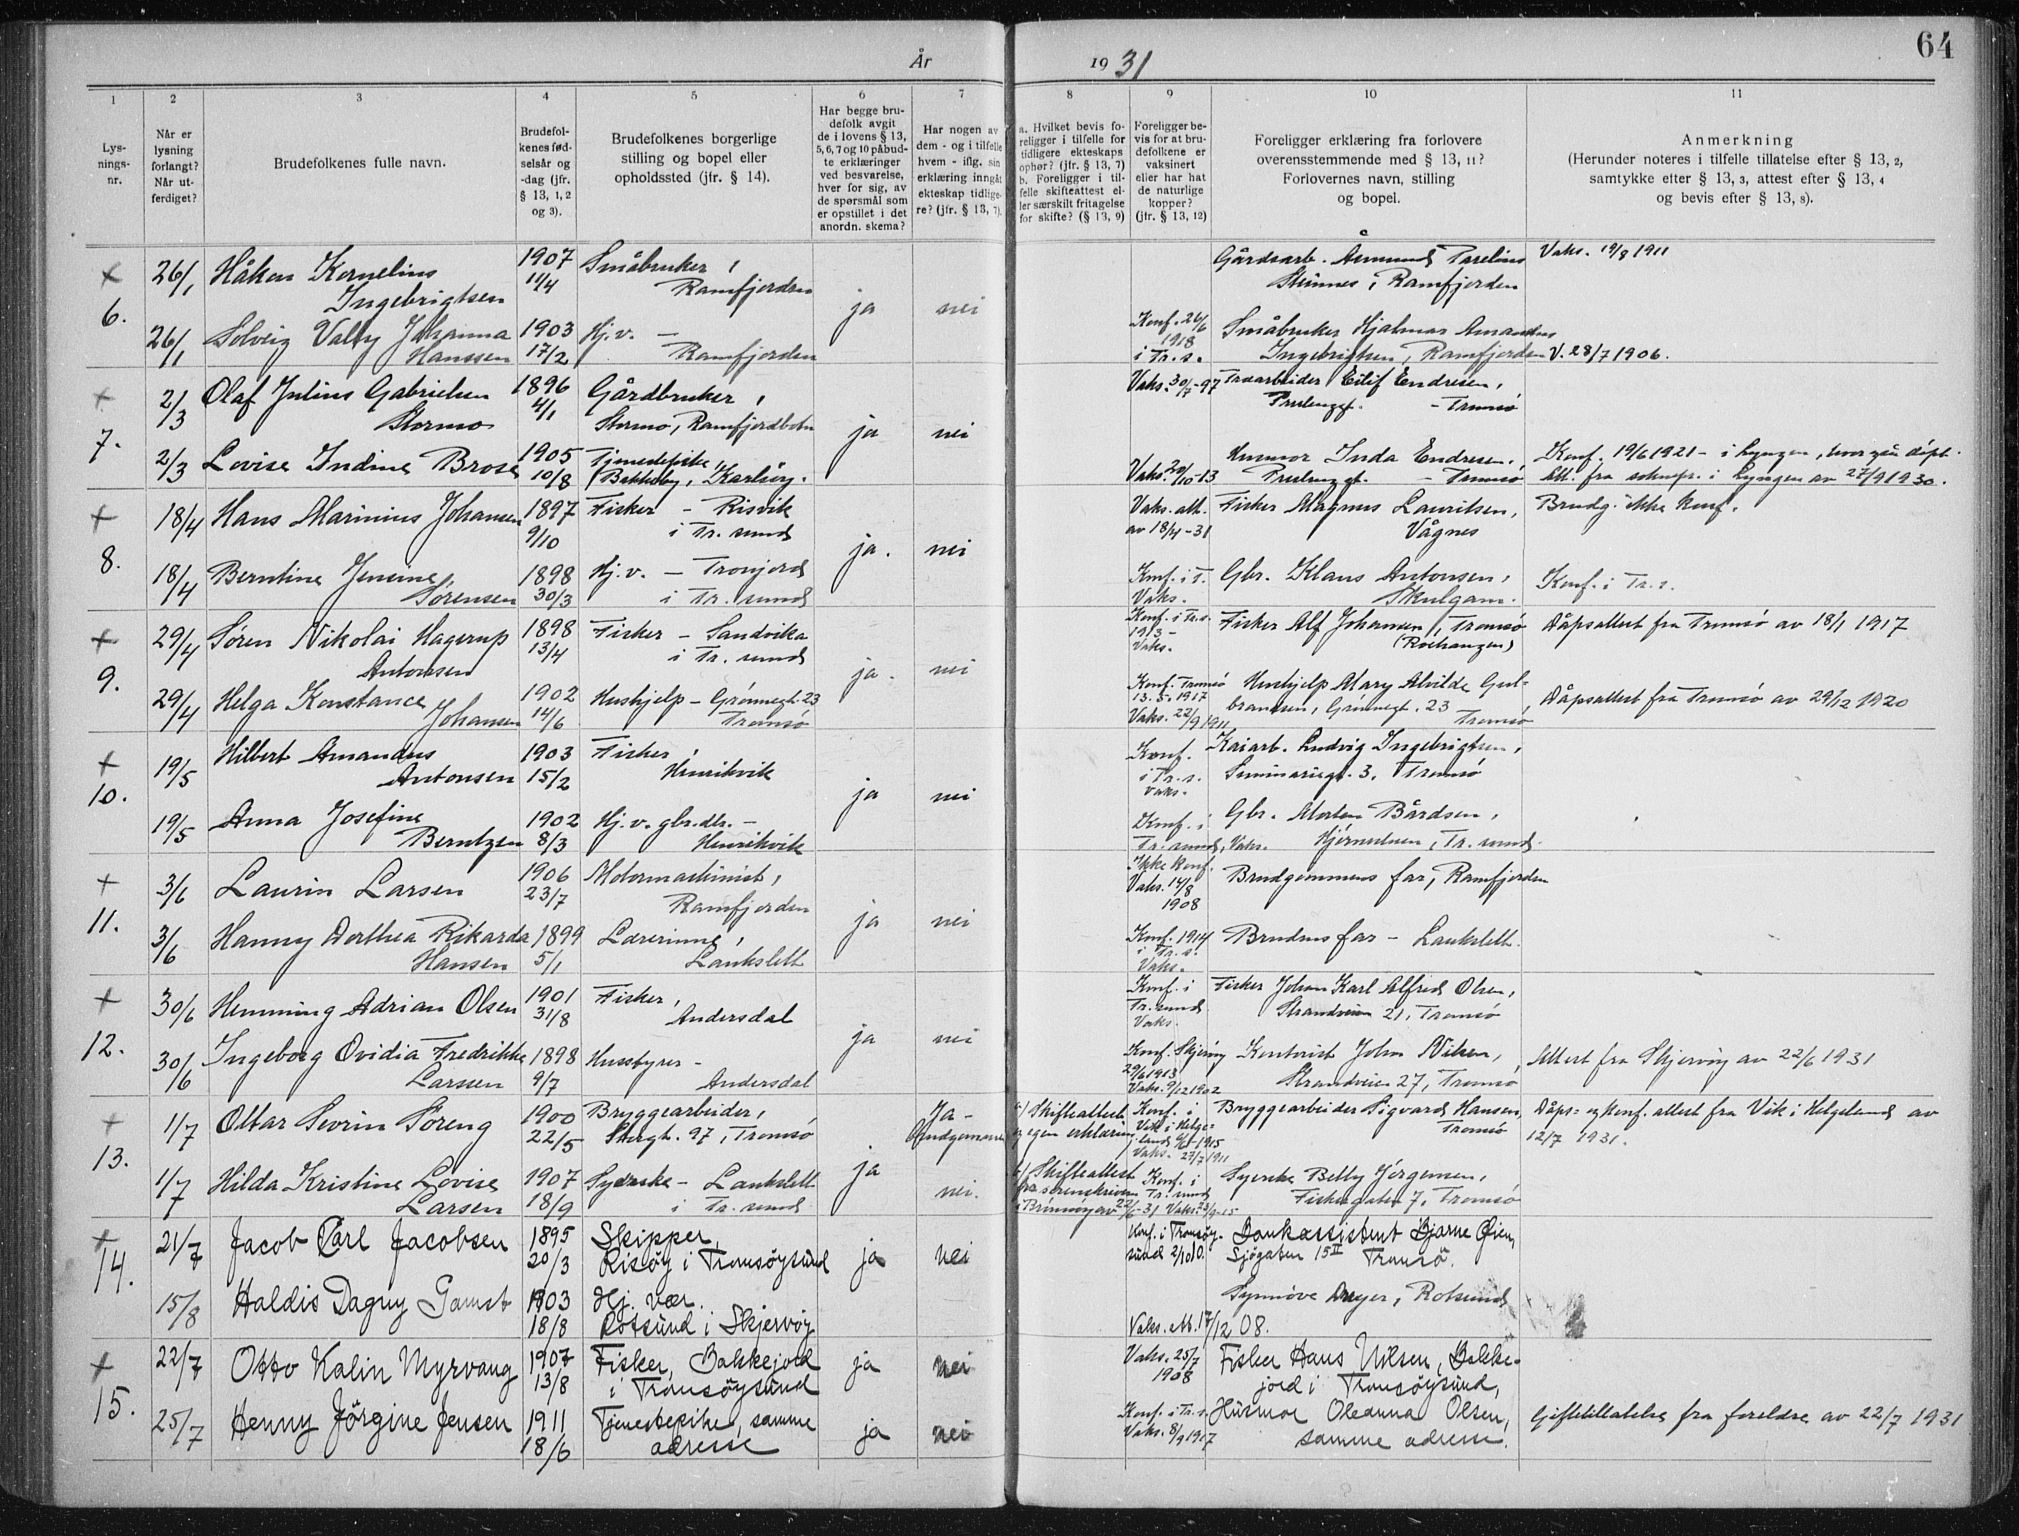 År 1931
64
1 2 3 4 5 6 7 8 9 10 11
Lys-
nings-
nr.
Når er
lysning
forlangt?
Når ut-
ferdiget?
Brudefolkenes fulle navn.
Brudefol-
kenes fød-
selsår og
-dag (jfr.
§ 13, 1, 2
og 3).
Brudefolkenes borgerlige
stilling og bopel eller
opholdssted (jfr. § 14).
Har begge bru-
defolk avgit
de i lovens § 13,
5, 6, 7 og 10 påbud-
te erklæringer
ved besvarelse,
hver for sig, av
de spørsmål som
er opstillet i det
anordn. skema?
Har nogen av
dem - og i tilfelle
hvem - iflg. sin
erklæring inngåt
ekteskap tidlige-
re? (jfr. § 13, 7).
a. Hvilket bevis fo-
religger i tilfelle for
tidligere ekteskaps
ophør? (jfr. § 13, 7)
b. Foreligger i til-
felle skifteattest el-
ler særskilt fritagelse
for skifte? (§ 13, 9)
Foreligger be-
vis for at bru-
defolkene er
vaksinert
eller har hat
de naturlige
kopper?
(jfr. § 13, 12)
Foreligger erklæring fra forlovere
overensstemmende med § 13, 11?
Forlovernes navn, stilling
og bopel.
Anmerkning
(Herunder noteres i tilfelle tillatelse efter § 13, 2,
samtykke efter § 13, 3, attest efter § 13, 4
og bevis efter § 13, 8).
+ 6.
26/1 Håkon Kornelius
Ingebrigtsen
1907
11/4
Småbruker,
Ramfjorden
ja nei
Gårdsarb. Åmund Parelius
Stinnes i Ramfjorden
Vaks. 19/8 1911
26/1 Solveig Valby Johanna
Hanssen
1903
17/2
Hj.v. –
Ramfjorden
Konf. 26/6
1918
i Tr.s.
Småbruker Hjalmar Amandus
Ingebrigtsen, Ramfjorden
V. 28/7 1906.
+ 7.
2/3 Olaf Julius Gabrielsen
Stormo
1896
4/1
Gårdbruker,
Stormo, Ramfjordbotn
ja nei
Vaks. 30/7-97
Eilif Endresen,
– Tromsø
2/3 Lovise Indine Brose
1905
10/8
Tjenestepike,
Bakkeby, Karlsøy.
Vaks. 20/10-13
Husmor Inda Endresen,
– Tromsø
Konf. 19/6 1921 – i Lyngen, hvor også døpt.
Att. fra soknepr. i Lyngen av 27/9 1930.
+ 8.
18/4 Hans Marinius Johansen
1897
9/10
Fisker – Risvik
i Tr. sund
ja. nei
Vaks. att.
av 18/4-31
Fisker Magnus Lauritsen,
Vågnes
Brudg. ikke konf.
18/4 Berntine Jensine
Sørensen
1898
30/3
Hj.v. – Tronjord
i Tr. sund
Konf. i T.
Vaks.
Gbr. Klaus Antonsen,
Skulgam.
Konf. i Tr.s.
+ 9.
29/4 Søren Nikolai Hagerup
Antonsen
1898
13/4
Fisker – Sandvika
i Tr. sund
ja. nei
Konf. i Tr.s.
1913 –
Vaks.
Fisker Alf Johansen, Tromsø
Dåpsattest fra Tromsø av 18/1 1917
29/4 Helga Konstance
Johansen
1902
14/6
Hushjelp – Grønnegt. 23
Tromsø
Konf. Tromsø
13.5.1917
Vaks. 22/9 1911
Hushjelp Mary Alvilde Gul-
brandsen, Grønnegt. 23
Tromsø
Dåpsattest fra Tromsø av 29/12 1920
+ 10.
19/5 Hilbert Amandus
Antonsen
1903
15/2
Fisker,
Henrikvik
ja nei
Konf.
i Tr.s.
Vaks.
Kaiarb. Ludvig Ingebrigtsen,
Seminariegt. 3. Tromsø
19/5 Anna Josefine
Berntzen
1902
8/3
Hj.v. gbr.dtr. –
Henrikvik
Konf. i
Tr. sund, Vaks.
Gbr. Morten Bårdsen,
Tr. sund.
+ 11.
3/6 Laurin Larsen
1906
23/7
Motormaskinist,
Ramfjorden
ja nei
Ikke konf.
Vaks. 14/8
1908
Brudgommens far, Ramfjorden
3/6 Hanny Dorthea Rikarda
Hansen
1899
5/1
Lærerinne,
Lankslett
Konf. 1914
i Tr.s.
Vaks.
Brudens far – Lankslett.
+ 12.
30/6 Henning Adrian Olsen
1901
31/8
Fisker,
Andersdal
ja nei
Konf. i
Tr. sund
Vaks.
Fisker Johan Karl Alfred Olsen,
Strandveien 21, Tromsø
30/6 Ingeborg Ovidia Fredrikke
Larssen
1898
9/7
Husstyrer –
Andersdal
Konf. Skjervøy
29/6 1913
Vaks. 9/12 1902
Kontorist Johan Nilsen,
Strandveien 27, Tromsø
Attest fra Skjervøy av 22/6 1931
+ 13.
1/7 Ottar Sevrin Søreng
1900
22/5
Bryggearbeider,
Storgt. 97, Tromsø
ja
Ja –
Brudgommen
a) Skifteattest
og egen erklæring
Konf. i
Vik i Helge-
land 1915
Vaks. 27/7 1911
Bryggearbeider Sigvard Hansen,
Tromsø
Dåps- og konf. attest fra Vik i Helgeland av
12/7 1931.
1/7 Hilda Kristine Lovise
Larsen
1907
18/9
Syerske – Lankslett
i Tr. sund
nei.
b) Skifteattest
fra sorenskriveren
i Brønnøy av 27/6-31
Konf. i
Tr. sund
Syerske Betty Jørgensen,
Fiskergaten 7, Tromsø
+ 14.
21/7 Jacob Carl Jacobsen
1895
20/3
Skipper,
Risøy i Tromsøysund
ja nei
Konf. i Tromsøy-
sund 2/10 10.
Bankassistent Bjarne Øien,
Sjøgaten 15 II Tromsø.
15/8 Haldis Dagny Gamst
1903
18/8
Hj. vær.
Rotsund i Skjervøy
Vaks. att. 17/12 08.
Synnøve Dreyer, Rotsund
+ 15.
22/7 Otto Kalin Myrvang
1907
13/8
Fisker, Bakkejord
i Tromsøysund
ja nei
Vaks. 25/7
1908
Fisker Hans Nilsen, Bakke-
jord i Tromsøysund,
25/7 Henny Jørgine Jensen
1911
18/6
Tjenestepike, samme
adresse
ja nei
Konf. i Tr.s.
Vaks. 8/9 1917
Husmor Oleanna Olsen,
samme adresse.
Giftetillatelse fra foreldre av 22/7 1931